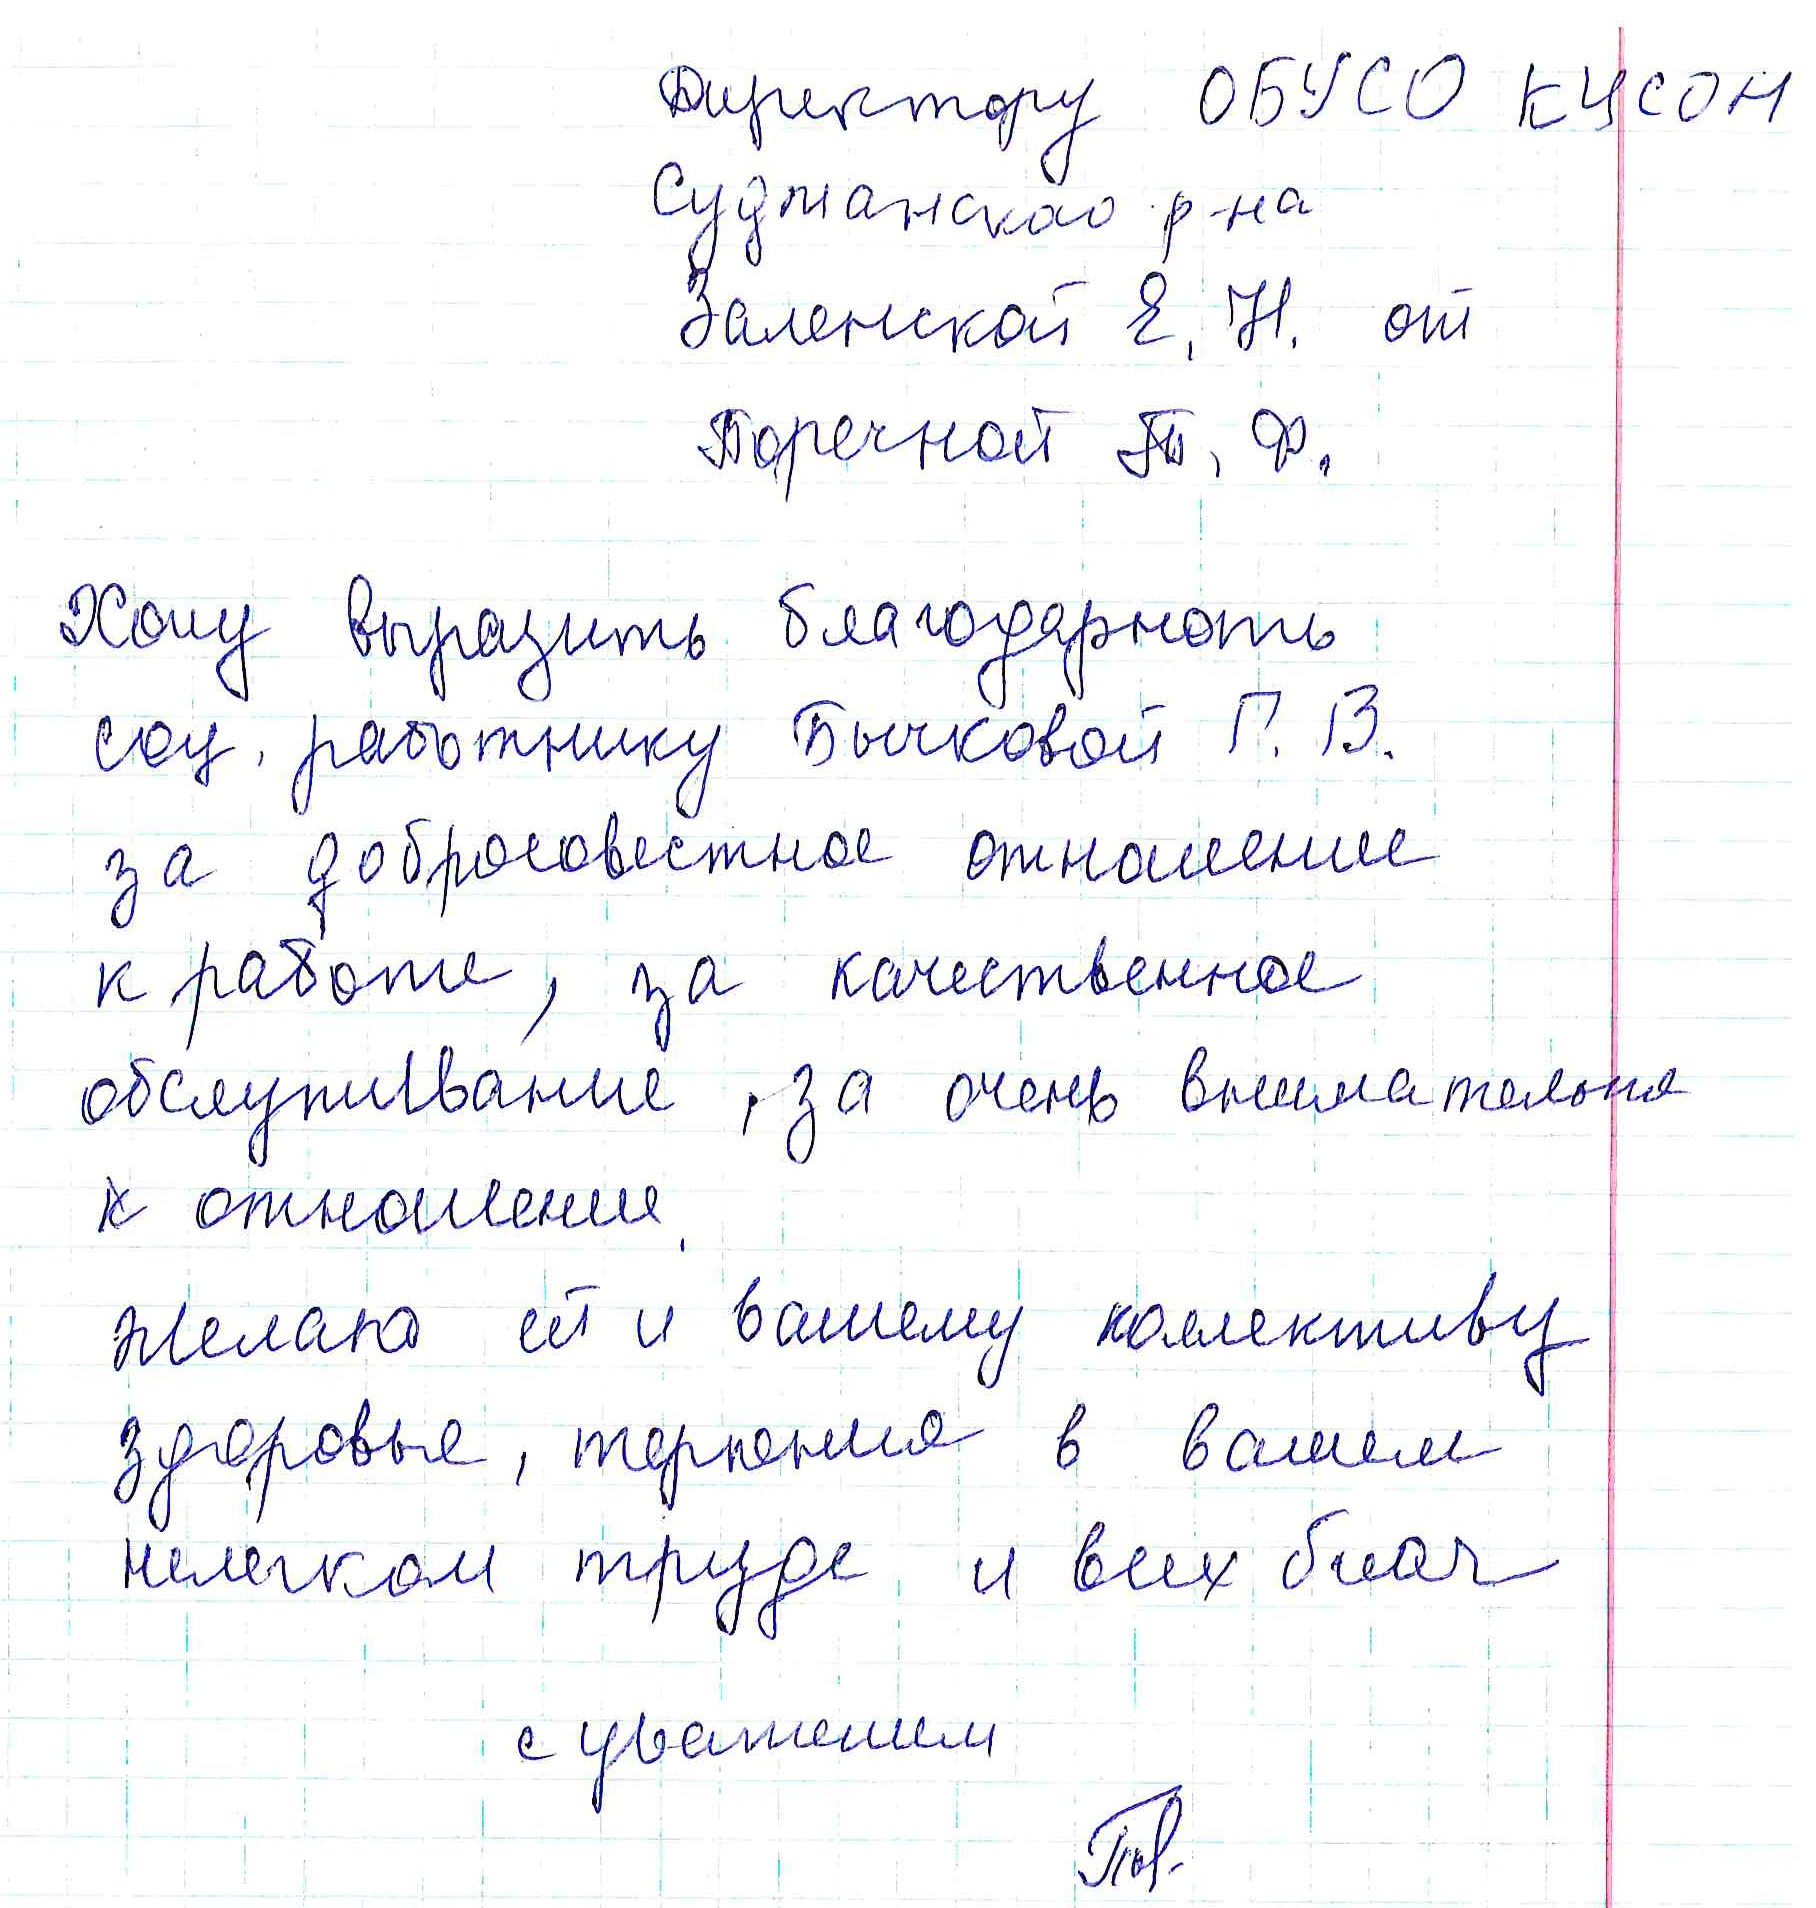 Директору ОБУСО КЦСОН
Суджанскао р-на
Заленской Е. Н. от
Поречной Т. Ф.
Хочу выразить благодарноть
соц. работнику Бычковой Г. В.
за добросовестное отношение
к работе, за качественное
обслуживание, за очень внимательное
к отношение.
Желаю ей и вашему коллективу
здоровье, терпения в вашем
нелегком труде и всех благ
с уважением